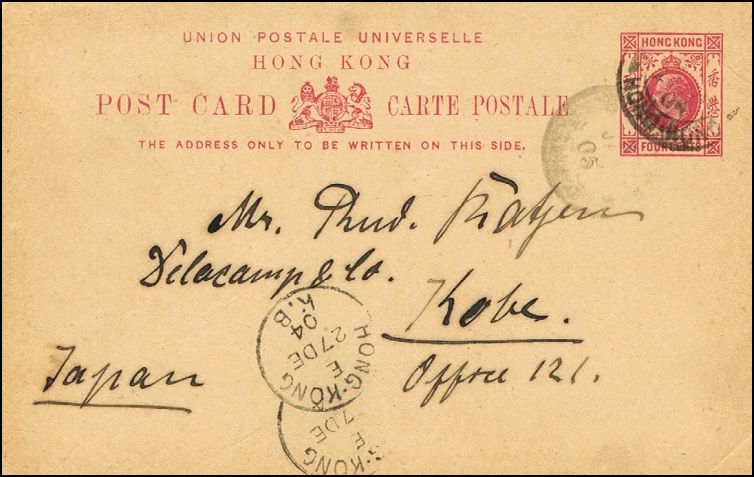 UNION POSTALE UNIVERSELLE
HONG KONG
POST CARD CARTE POSTALE
THE ADDRESS ONLY TO BE WRITTEN ON THIS SIDE.
HONG KONG
香港
FOUR CENTS
05
Mr. Rud. Ratjen
Delacamp & Co.
Kobe.
Japan
Office 121.
HONG-KONG
E
27 DE
04
K.B
HONG-KONG
E
7 DE